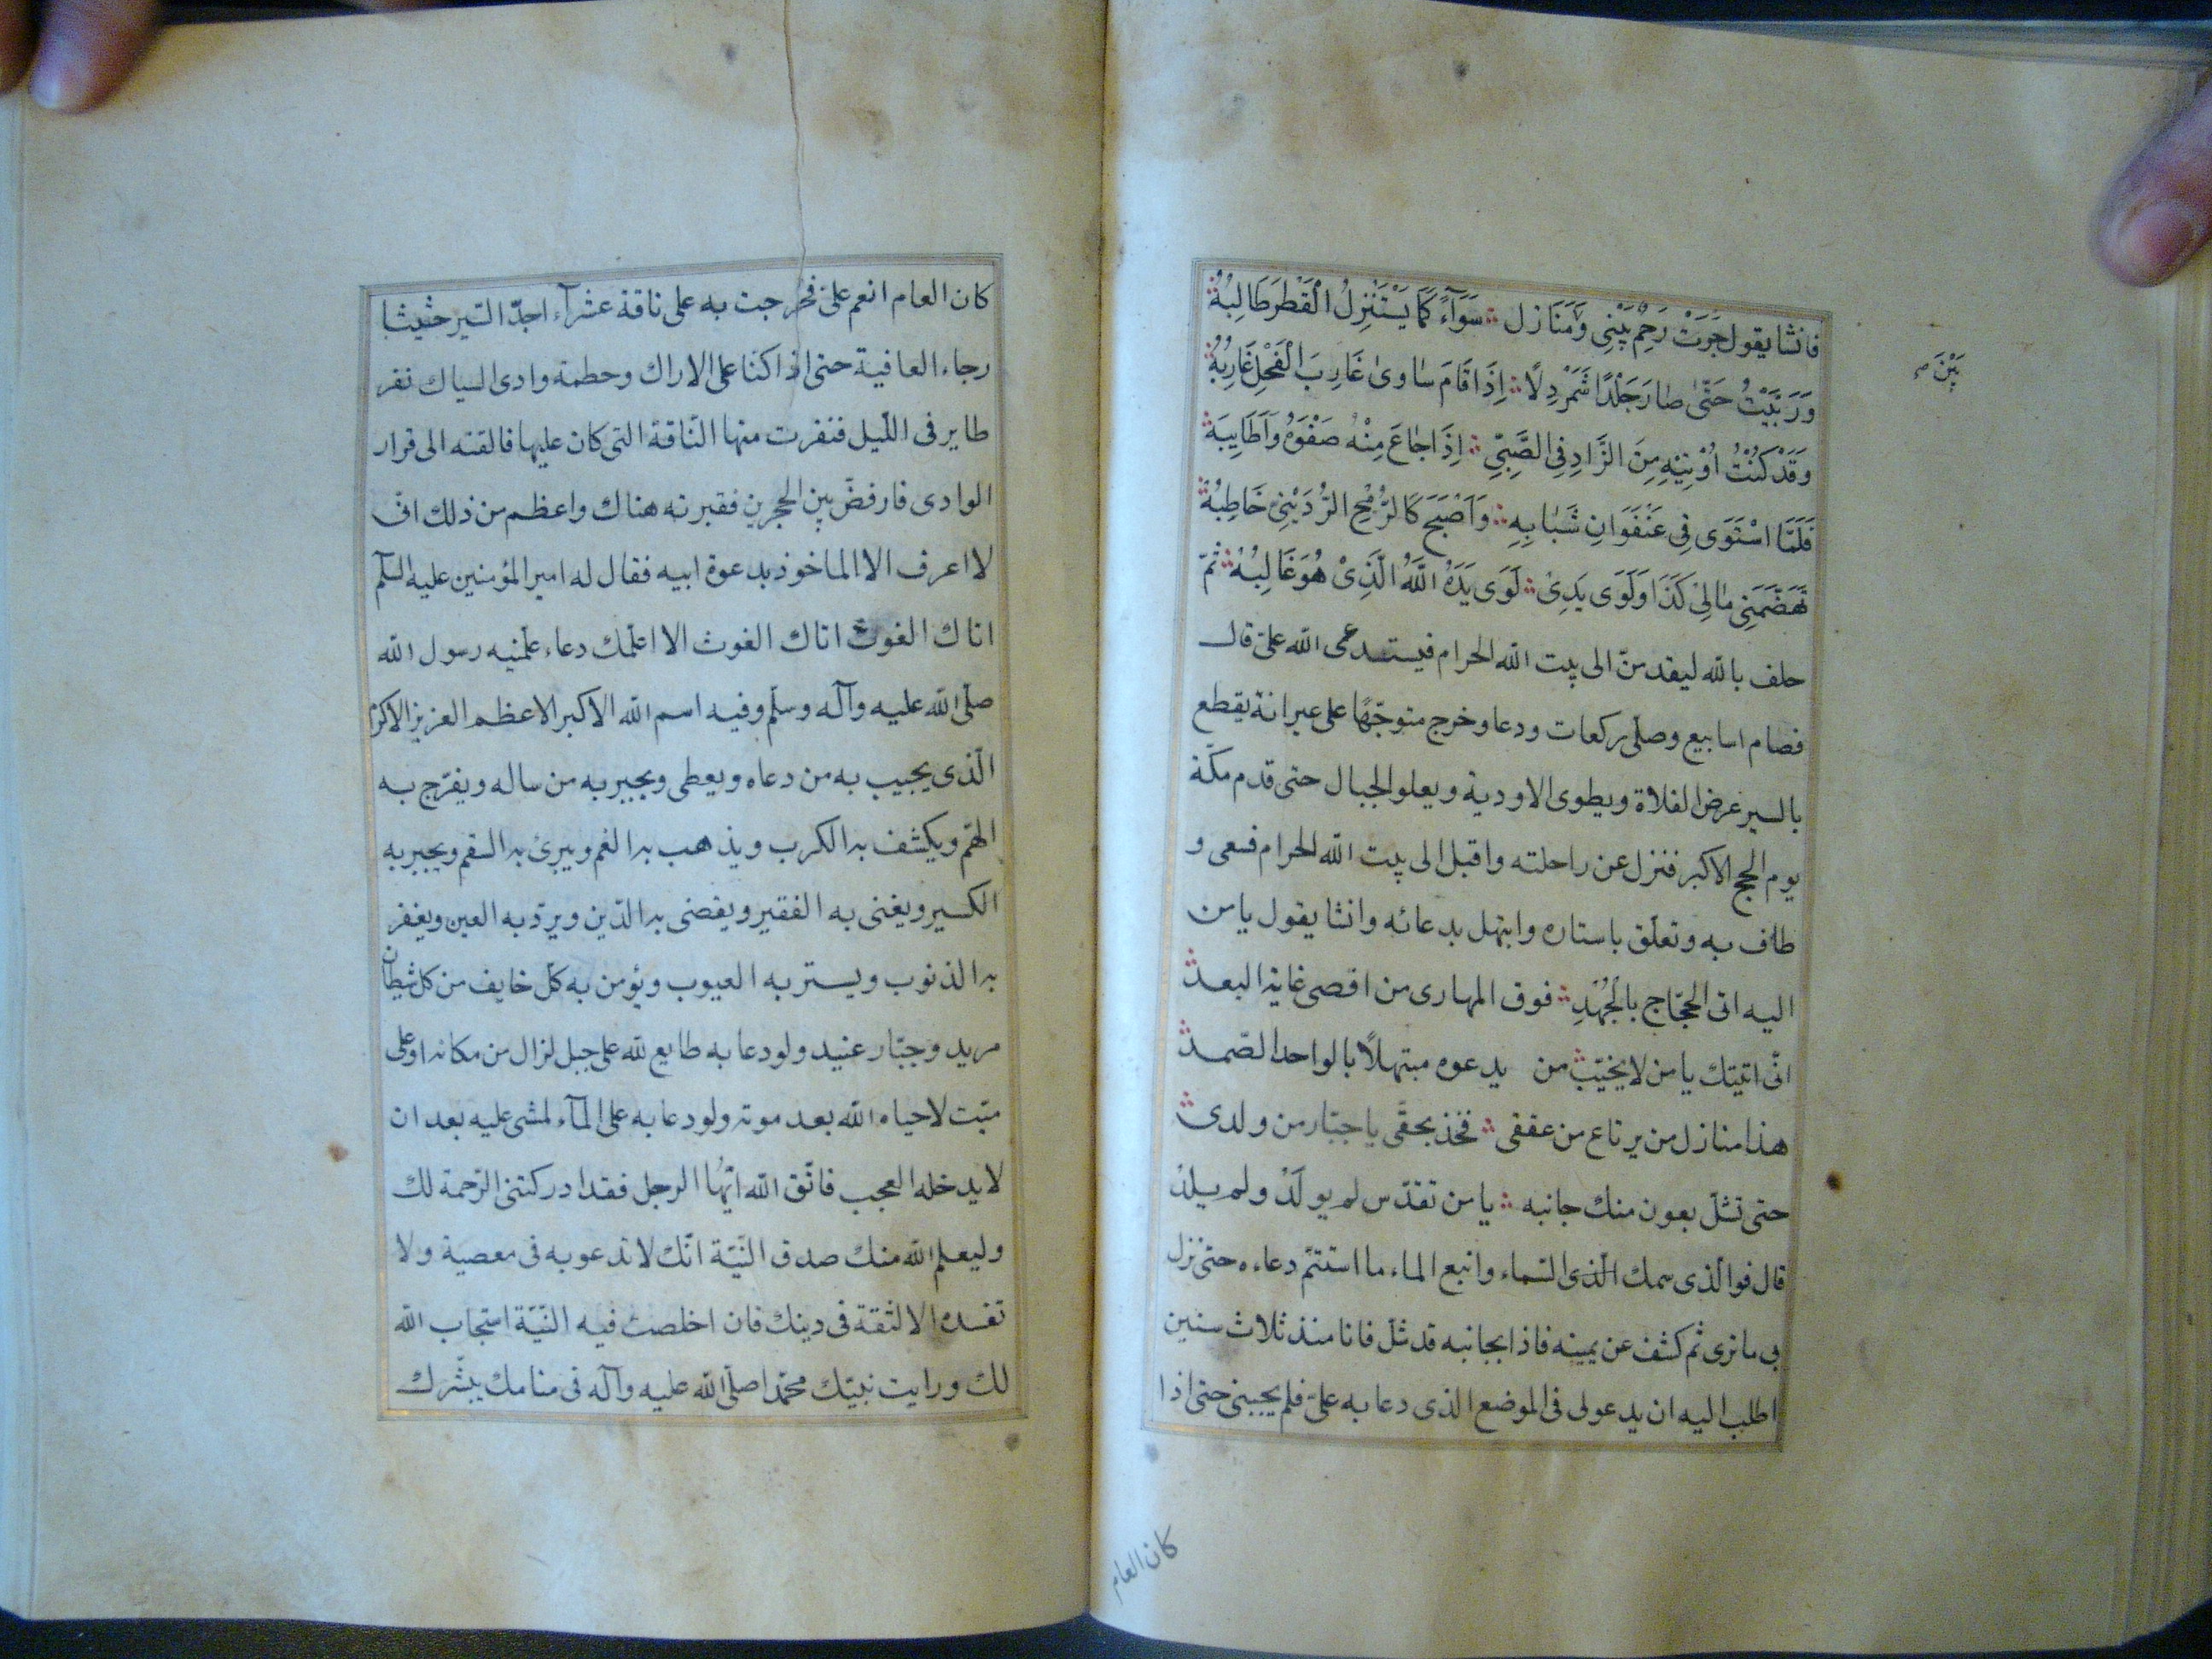 فانشا يقول جَرَتْ رَحِمٌ بَيْنِي وَمَنَازل سَوَآءً كَمَا يَسْتَنْزِلُ الْقَطْرَ طَالِبُهُ
بَيْنَ م
وَرَبَّيْتُ حَتّىٰ صٰارَ جَلْدًا شَمَرْدِلًا اِذَا قَامَ سٰاوىٰ غَارِبَ الْفَحْلِ غَارِبُهُ
وَقَدْ كُنْتُ اُوْتِيْهِ مِنَ الزَّادِ فِي الصَّبِيِّ اِذَا جٰاعَ مِنْهُ صَفْوَهُ وَاَطَايِبَهُ
فَلَمَّا اسْتَوَى فِي عَنْفَوَانِ شَبٰابِهِ وَاَصْبَحَ كَالرُّمْحِ الرُّدَيْنِيْ خَاطِبُهُ
تَهَضَّمَنِي مٰالِيْ كَذَا وَلَوَى يَدِيْ لَوَى يَدَهُ اللّٰهُ الَّذِيْ هُوَ غَالِبُهُ ثمّ
حلف بالله ليقدمنّ الى بيت الله الحرام فيستعدى الله علىّ قال
فصام اسابيع وصلّى ركعات ودعا وخرج متوجّهًا على عيرانة يقطع
بالسير عرض الفلاة ويطوى الاودية ويعلو الجبال حتى قدم مكّة
يوم الحج الاكبر فنزل عن راحلته واقبل الى بيت الله الحرام فسعى و
طاف به وتعلّق باستاره وابتهل بدعائه وانشا يقول يا من
اليه اتى الحجّاج بالجُهْدِ فوق المهارى من اقصى غاية البعد
انّى اتيتك يا من لا يخيّب من يدعوه مبتهلًا بالواحد الصّمد
هذا منازل من يرتاع من عققى فخذ بحقّى يا جبّار من ولدى
حتى تشلّ بعون منك جانبه يا من تقدّس لم يولَدْ ولم يلد
قال فوالّذى سمك الّذى السّماء وانبع الماء ما استتمّ دعاءه حتى نزل
بى ما ترى ثم كشف عن يمينه فاذا بجانبه قد شلّ فانا منذ ثلاث سنين
اطلب اليه ان يدعو لى فى الموضع الذى دعا به علىّ فلم يجبنى حتى اذا
كان العام
كان العام انعم علىّ فخرجت به على ناقة عشرآء اجدّ السّير حثيثا
رجاء العافية حتى اذا كنّا على الاراك وحطمة وادى السياك نفر
طاير فى اللّيل فنفرت منها النّاقة التى كان عليها فالقته الى قرار
الوادى فارفضّ بين الحجرين فقبرته هناك واعظم من ذلك انّى
لا اعرف الا الماخوذ بدعوة ابيه فقال له امير المؤمنين عليه السّلم
اتاك الغوث اتاك الغوث الا اعلّمك دعاء علّمنيه رسول الله
صلّى الله عليه وآله وسلّم وفيه اسم الله الاكبر الاعظم العزيز الاكرم
الّذى يجيب به من دعاه ويعطى ويجير به من ساله ويفرّج به
الهمّ ويكشف به الكرب ويذهب به الغم ويبرئ به السقم ويجبر به
الكسير ويغنى به الفقير ويقضى به الدّين ويردّ به العين ويغفر
به الذنوب ويستر به العيوب ويؤمن به كلّ خايف من كل شيطان
مريد وجبّار عنيد ولو دعا به طايع لله على جبل لزال من مكانه او على
ميّت لاحياه الله بعد موته ولو دعا به على المآء لمشى عليه بعد ان
لا يدخله العجب فاتّق الله ايّها الرجل فقد ادركتنى الرّحمة لك
وليعلم الله منك صدق النّيّة انّك لا تدعو به فى معصية ولا
تفده الا لثقة فى دينك فان اخلصت فيه النّيّة استجاب الله
لك ورايت نبيّك محمّدا صلّى الله عليه وآله فى منامك يبشّرك